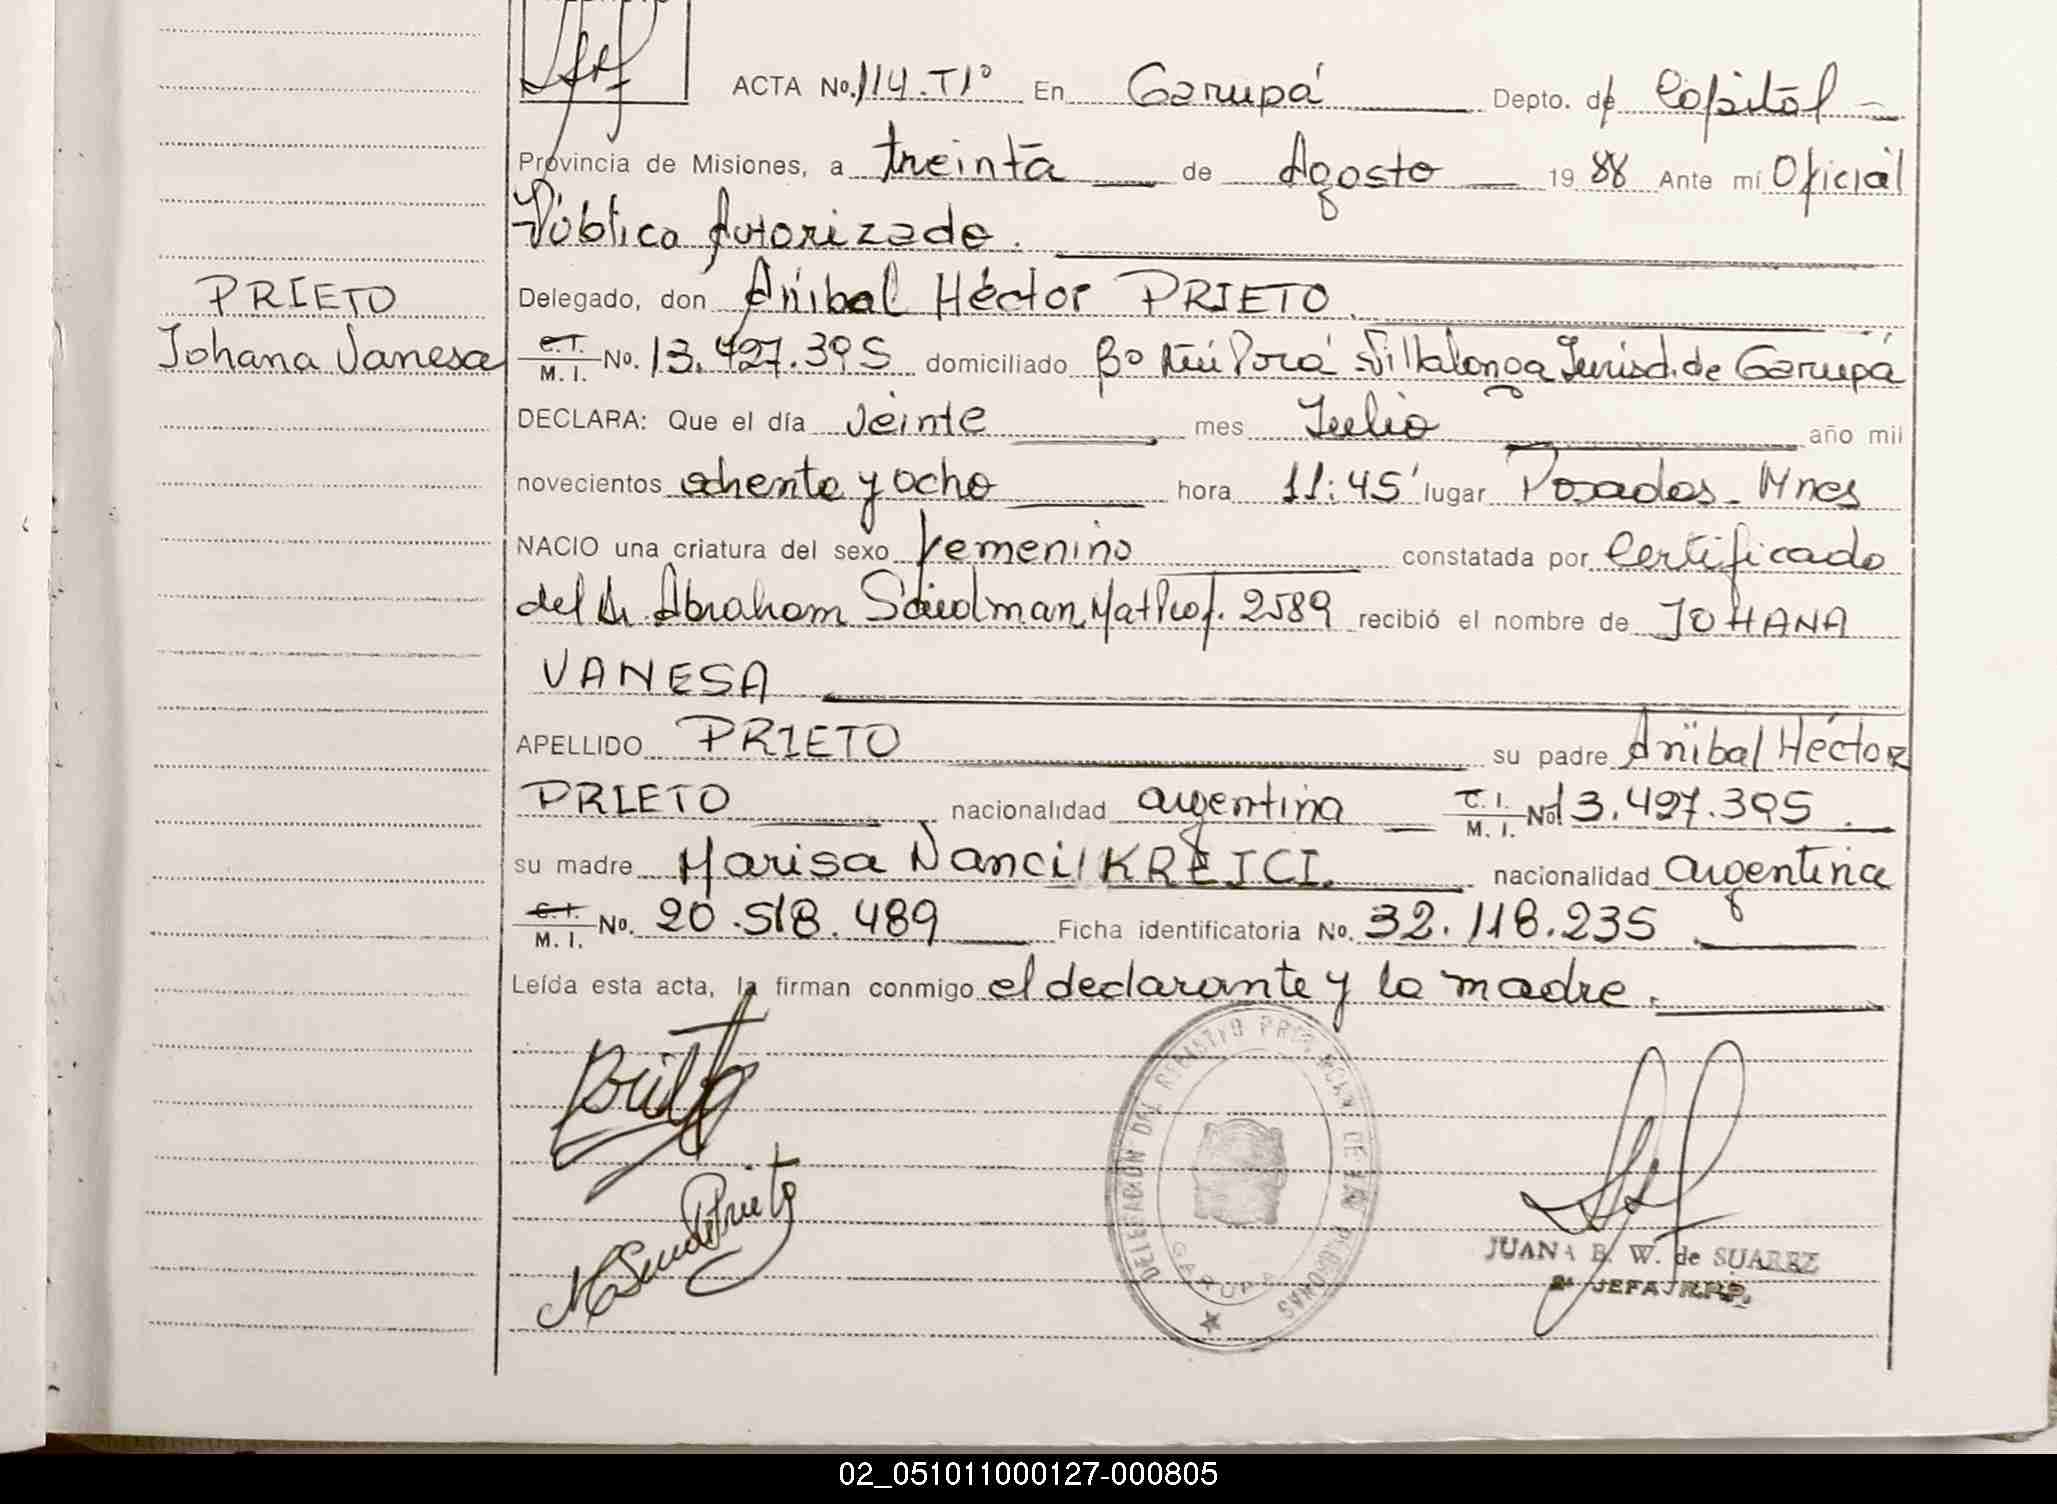 ACTA No. 114.T1º En Garupá Depto. de Capital
Provincia de Misiones, a treinta de Agosto 1988 Ante mí Oficial
Pública Autorizado.
PRIETO
Johana Vanesa
Delegado, don Aníbal Héctor PRIETO.
C.I. M.I. No. 13.427.395 domiciliado Bº Ñu Porá Villalonga Jurisd. de Garupá
DECLARA: Que el día veinte mes Julio año mil
novecientos ochenta y ocho hora 11:45' lugar Posadas - Mnes
NACIO una criatura del sexo femenino constatada por Certificado
del Dr. Abraham Mat Prof. 2589 recibió el nombre de JOHANA
VANESA
APELLIDO PRIETO su padre Aníbal Héctor
PRIETO nacionalidad argentina C.I. M.I. No 13.427.395.
su madre Marisa Nanci KREJCI. nacionalidad argentina
C.I. M.I. No. 20.518.489 Ficha identificatoria No. 32.118.235.
Leída esta acta, la firman conmigo el declarante y la madre.
DELEGACION DEL REGISTRO PROVINCIAL DE LAS PERSONAS
GARUPA
JUANA B. W. de SUAREZ
2ª JEFA R.P.P.
02_051011000127-000805